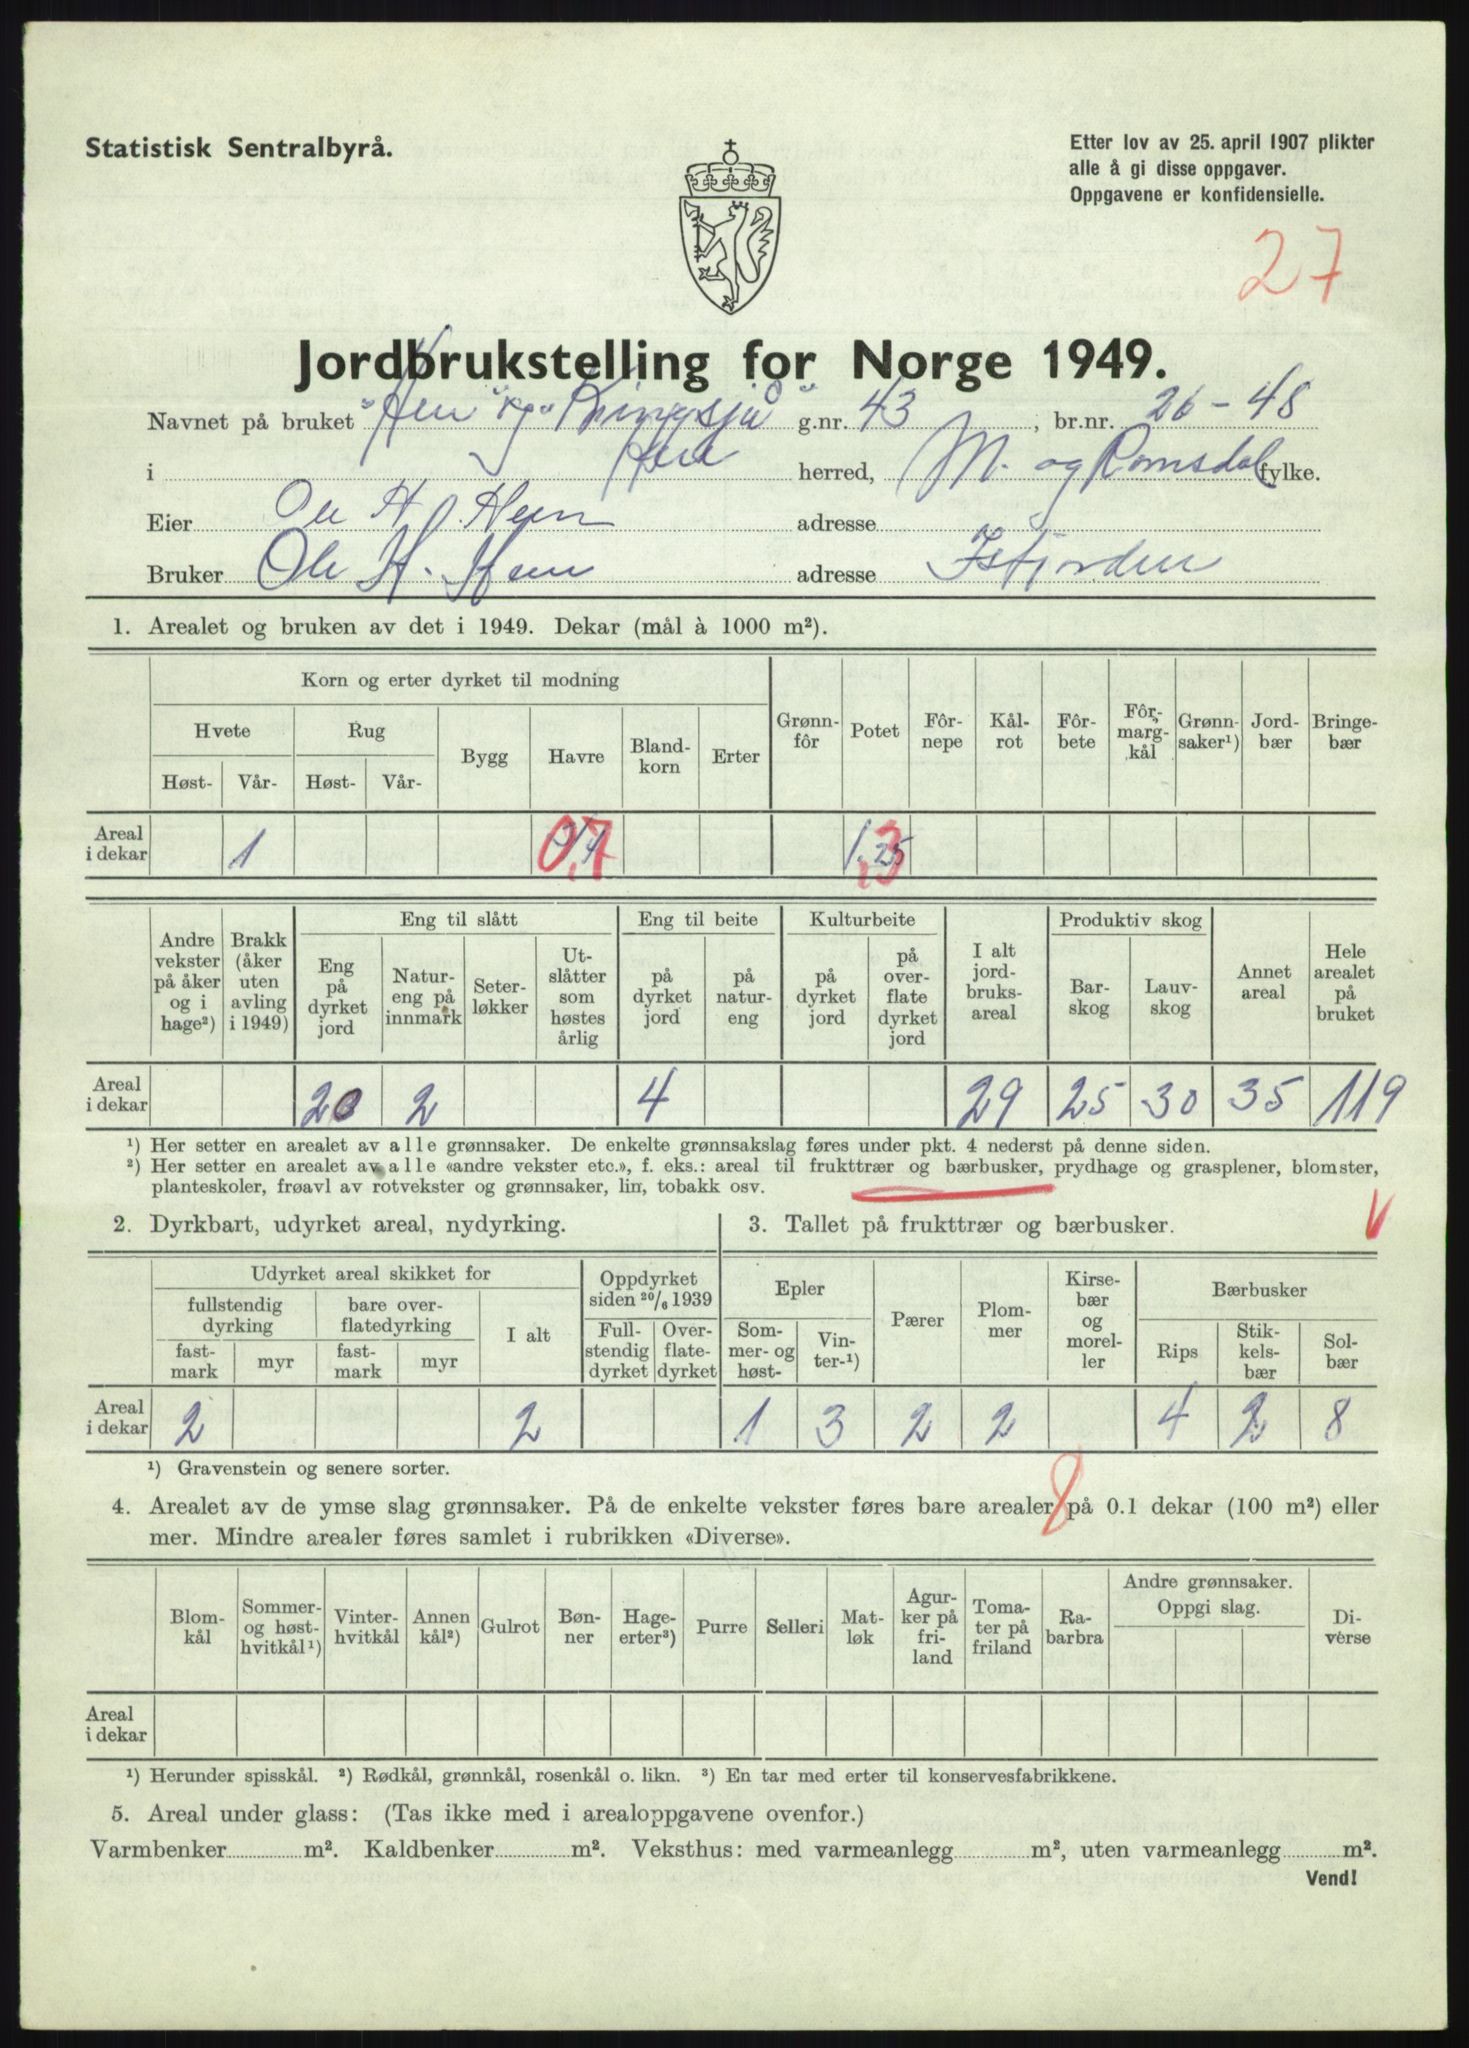 Statistisk Sentralbyrå.
Etter lov av 25. april 1907 plikter
alle å gi disse oppgaver.
Oppgavene er konfidensielle.
27
Jordbrukstelling for Norge 1949.
Navnet på bruket "Hen" og "Kringsjå" g.nr. 43, br.nr. 26-48
i Hen herred, M. og Romsdal fylke.
Eier Ole H. Hen adresse
Bruker Ole H. Hen adresse Isfjorden
1. Arealet og bruken av det i 1949. Dekar (mål à 1000 m²).
Korn og erter dyrket til modning
Hvete Rug Bygg Havre Bland-korn Erter Grønn-fôr Potet Fôr-nepe Kål-rot Fôr-bete Fôr-marg-kål Grønn-saker¹) Jord-bær Bringe-bær
Høst- Vår- Høst- Vår-
Areal i dekar 1 0,7 3/4 1.25 ,3
Andre vekster på åker og i hage²) Brakk (åker uten avling i 1949) Eng til slått Eng til beite Kulturbeite I alt jord-bruks-areal Produktiv skog Annet areal Hele arealet på bruket
Eng på dyrket jord Natur-eng på innmark Seter-løkker Ut-slåtter som høstes årlig på dyrket jord på natur-eng på dyrket jord på over-flate dyrket jord Bar-skog Lauv-skog
Areal i dekar 20 2 4 29 25 30 35 119
¹) Her setter en arealet av alle grønnsaker. De enkelte grønnsakslag føres under pkt. 4 nederst på denne siden.
²) Her setter en arealet av alle «andre vekster etc.», f. eks.: areal til frukttrær og bærbusker, prydhage og grasplener, blomster,
planteskoler, frøavl av rotvekster og grønnsaker, lin, tobakk osv.
2. Dyrkbart, udyrket areal, nydyrking.
3. Tallet på frukttrær og bærbusker.
Udyrket areal skikket for Oppdyrket siden 20/6 1939 Epler Pærer Plom-mer Kirse-bær og morel-ler Bærbusker
fullstendig dyrking bare over-flatedyrking I alt Full-stendig dyrket Over-flate-dyrket Som-mer- og høst- Vin-ter-¹) Rips Stik-kels-bær Sol-bær
fast-mark myr fast-mark myr
Areal i dekar 2 2 1 3 2 2 4 2 8
¹) Gravenstein og senere sorter.
8
4. Arealet av de ymse slag grønnsaker. På de enkelte vekster føres bare arealer på 0.1 dekar (100 m²) eller
mer. Mindre arealer føres samlet i rubrikken «Diverse».
Blom-kål Sommer- og høst-hvitkål¹) Vinter-hvitkål Annen kål²) Gulrot Bøn-ner Hage-erter³) Purre Selleri Mat-løk Agur-ker på fri-land Toma-ter på friland Ra-barbra Andre grønnsaker. Oppgi slag. Di-verse
Areal i dekar
¹) Herunder spisskål. ²) Rødkål, grønnkål, rosenkål o. likn. ³) En tar med erter til konservesfabrikkene.
5. Areal under glass: (Tas ikke med i arealoppgavene ovenfor.)
Varmbenker m². Kaldbenker m². Veksthus: med varmeanlegg m², uten varmeanlegg m².
Vend!